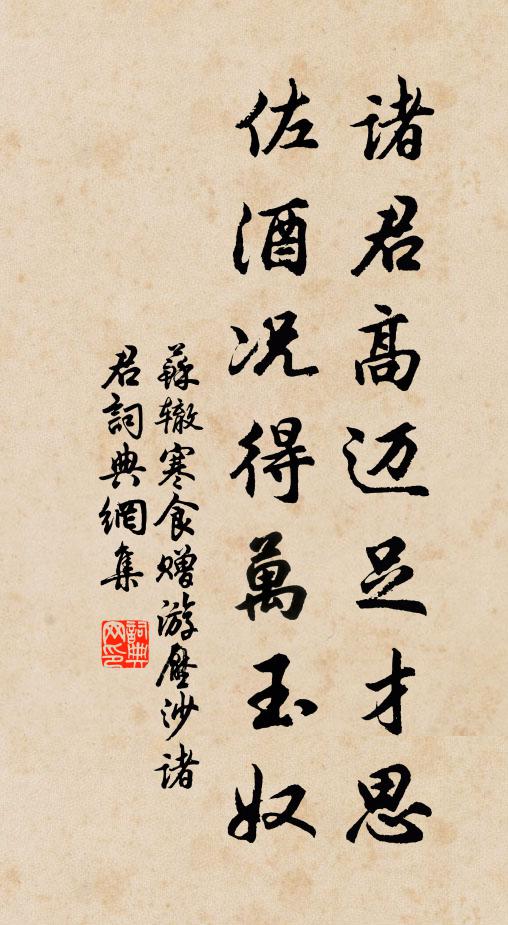 諸君高迈足才思
佐酒况得萬玉奴
蘇辙寒食赠游壓沙諸
君詞典網集
詞典网印